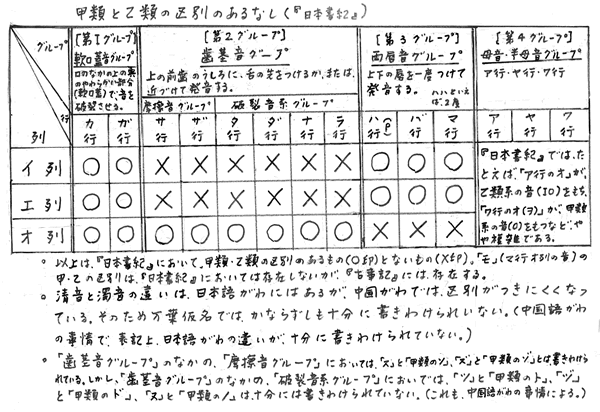 甲類と乙類の区別のあるなし(『日本書紀』)
グループ
行
列
[第1グループ]
軟口蓋音グループ
口のなかの上の奥のやわらかい部分(軟口蓋)で、音を破裂させる。
[第2グループ]
歯茎音グループ
上の前歯のうしろに、舌の先をつけるか、または、近づけて発音する。
摩擦音グループ
破裂音系グループ
[第3グループ]
両唇音グループ
上下の唇を一度つけて発音する。
ハハといえば、2度
[第4グループ]
母音・半母音グループ
ア行・ヤ行・ワ行
カ行 ガ行 サ行 ザ行 タ行 ダ行 ナ行 ラ行 ハ(P)行 バ行 マ行 ア行 ヤ行 ワ行
イ列 ○ ○ × × × × × × ○ ○ ○
エ列 ○ ○ × × × × × × ○ ○ ○
オ列 ○ ○ ○ ○ ○ ○ ○ ○ × × ×
『日本書紀』では、た
とえば、「ア行のオ」が、
乙類系の音(IO)をもち、
「ワ行のオ(ヲ)」が、甲類
系の音(O)をもつなど、や
や複雑である。
。以上は、『日本書紀』において、甲類・乙類の区別のあるもの(○印)とないもの(×印)。「モ」(マ行オ列の音)の
甲・乙の区別は、『日本書紀』においては存在しないが、『古事記』には、存在する。
。清音と濁音の違いは、日本語がわにはあるが、中国がわでは、区別がつきにくくなっ
ている。そのため万葉仮名では、かならずしも十分に書きわけられいない。(中国語がわ
の事情で、表記上、日本語がわの違いが、十分に書きわけられていない。)
。「歯茎音グループ」のなかの、「摩擦音グループ」においては、「ス」と「甲類のソ」、「ズ」と「甲類のゾ」とは書きわけら
れている。しかし、「歯茎音グループ」のなかの、「破裂音系グループ」においては、「ツ」と「甲類のト」、「ヅ」
と「甲類のド」、「ヌ」と「甲類のノ」は、十分には書きわけられていない。(これも、中国語がわの事情による。)